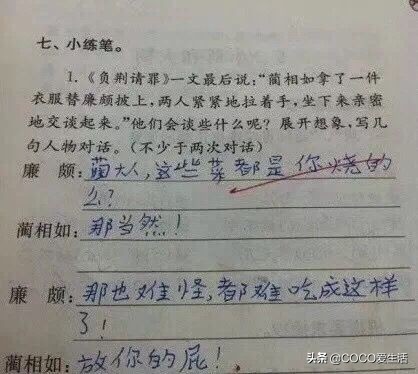 七、小练笔。
1.《负荆请罪》一文最后说:“蔺相如拿了一件
衣服替廉颇披上,两人紧紧地拉着手,坐下来亲密
地交谈起来。”他们会谈些什么呢?展开想象,写几
句人物对话。(不少于两次对话)
廉 颇:蔺大人,这些菜都是你烧的
么?
蔺相如:那当然!
廉 颇:那也难怪,都难吃成这样
了!
蔺相如:放你的屁!
头条 @COCO爱生活